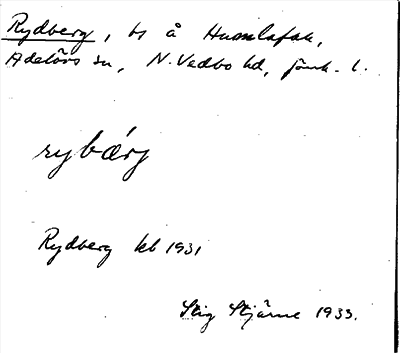 Rydberg, ts å Humlafak,
Adelövs sn, N. Vedbo hd, Jönk. l.
rybärj
Rydberg kb 1931
Stig Stjärne 1933.